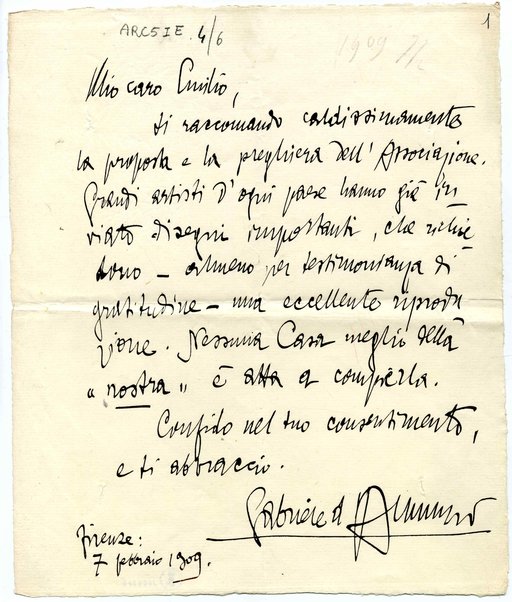 ARC5IE 4/6
1
1909
Mio caro Emilio,
ti raccomando caldissimamente
la proposta e la preghiera dell'Associazione.
Grandi artisti d'ogni paese hanno già in
viato disegni importanti, che richie
dono – almeno per testimonianza di
gratitudine – una eccellente riprodu
zione. Nessuna Casa meglio della
"nostra" è atta a compierla.
Confido nel tuo consentimento,
e ti abbraccio.
Gabriele d'Annunzio
Firenze:
7 febbraio 1909.